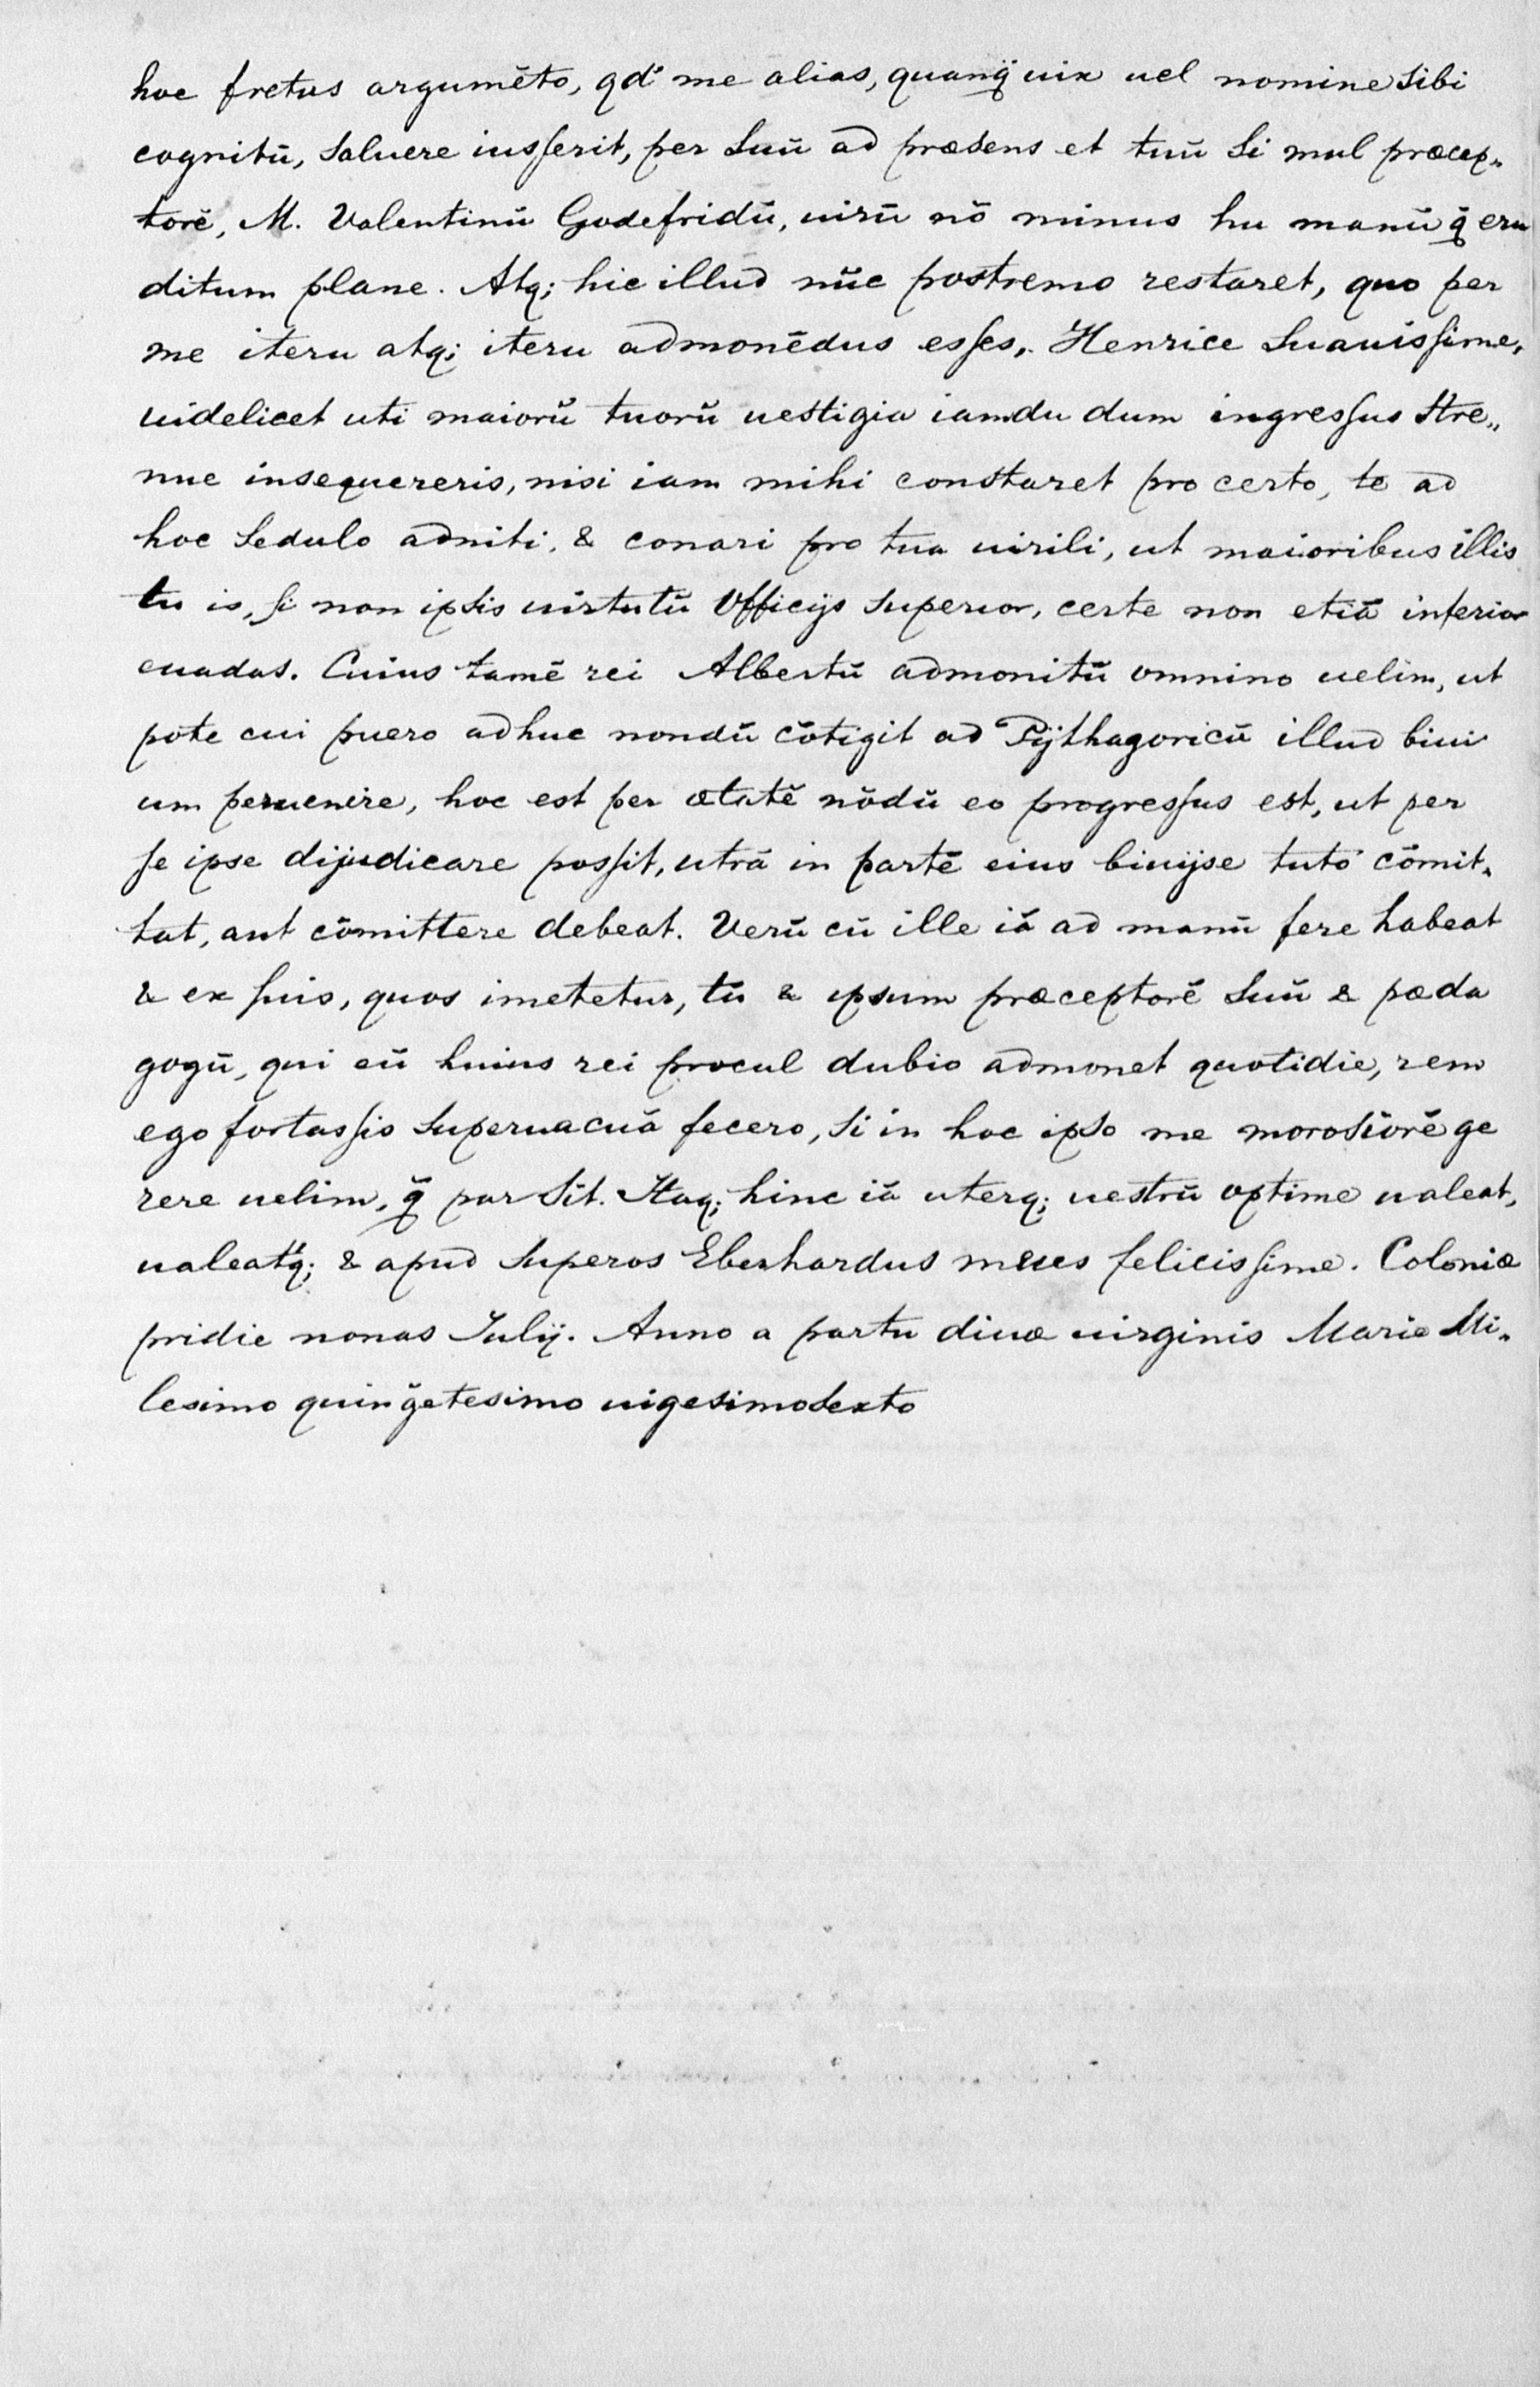 hoc fretus argumēto, qd' me alias, quanq̃ uix uel nomine sibi
cognitū, saluere iusſerit, per suū ad præsens et tuū si mul præcep„
torē, M. Valentinū Godefridū, uirū nō minus hu manū q̃ eru
ditum plane. Atq; hic illud nūc postremo restaret, quo per
me iteru atq; iteru admonēdus esſes, Henrice suauisſime,
uidelicet uti maiorū tuorū uestigia iamdu dum ingresſus stre„
nue insequereris, nisi iam mihi constaret pro certo, te ad
hoc sedulo adniti, & conari pro tua uirili, ut maioribus illis
tu is, ſi non ipsis uirtutū Officijs superior, certe non etiā inferior
euadas. Cuius tamē rei Albertū admonitū omnino uelim, ut
pote cui puero adhuc nondū cōtigit ad Pÿthagoricū illud biui
um peruenire, hoc est per ætatē nōdū eo progresſus est, ut per
ſe ipse dijudicare posſit, utrā in partē eius biuijse tuto cōmit„
tat, aut cōmittere debeat. Verū cū ille iā ad manū fere habeat
& ex ſuis, quos imetetur, tū & ipsum præceptorē suū & pæda
gogū, qui eū huius rei procul dubio admonet quotidie, rem
ego fortasſis superuacuā fecero, si in hoc ipso me morosiorē ge
rere uelim, q̃ par sit. Itaq; hinc iā uterq; uestrū optime ualeat,
ualeatq; & apud superos Eberhardus meus felicisſime. Coloniæ
pridie nonas Julij. Anno a partu diuæ uirginis Mariæ Mi„
lesimo quingētesimo uigesimosexto